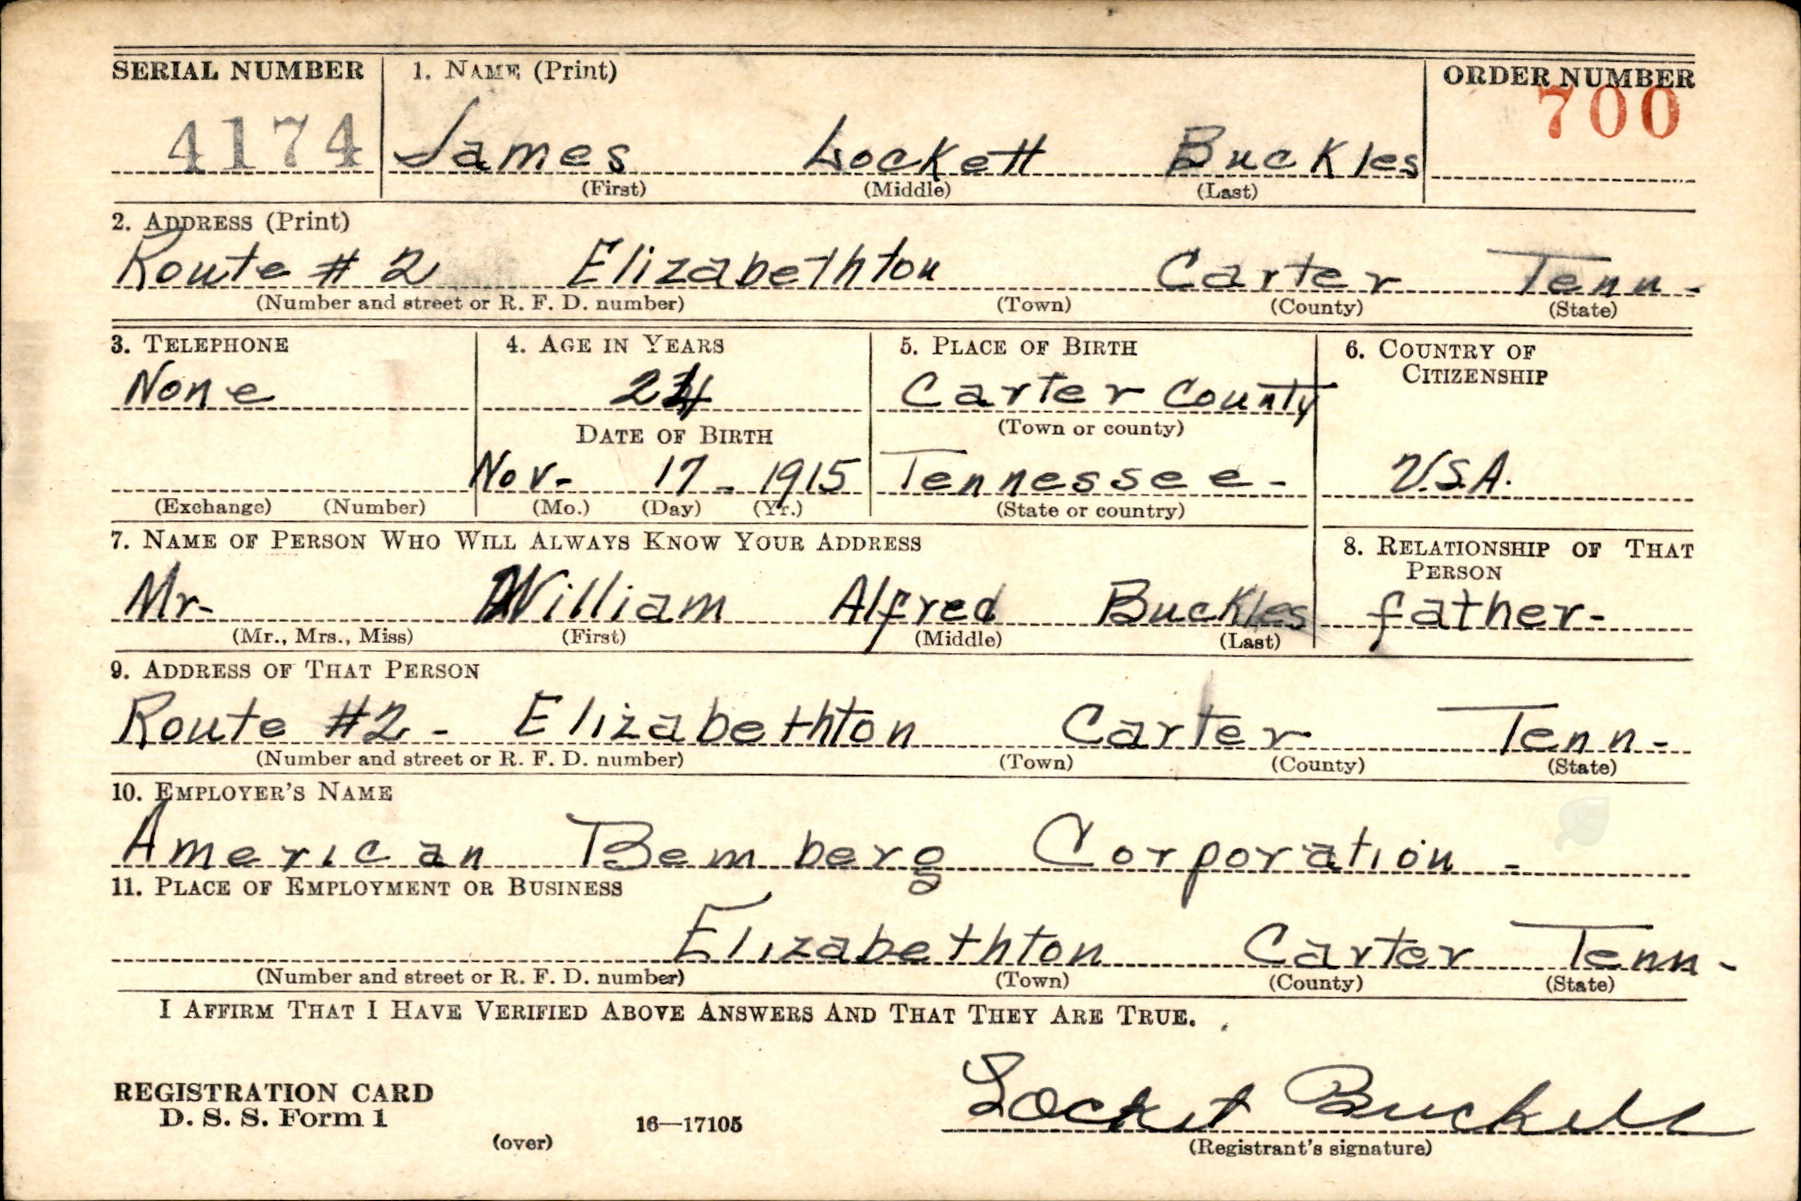 SERIAL NUMBER 1. NAME (Print) ORDER NUMBER
4174 James Lockett Buckles 700
(First) (Middle) (Last)
2. ADDRESS (Print)
Route # 2 Elizabethton Carter Tenn-
(Number and street or R. F. D. number) (Town) (County) (State)
3. TELEPHONE 4. AGE IN YEARS 5. PLACE OF BIRTH 6. COUNTRY OF CITIZENSHIP
None 24 Carter County
DATE OF BIRTH (Town or county)
Nov- 17- 1915 Tennessee- U.S.A.
(Exchange) (Number) (Mo.) (Day) (Yr.) (State or country)
7. NAME OF PERSON WHO WILL ALWAYS KNOW YOUR ADDRESS 8. RELATIONSHIP OF THAT PERSON
Mr- William Alfred Buckles father-
(Mr., Mrs., Miss) (First) (Middle) (Last)
9. ADDRESS OF THAT PERSON
Route #2- Elizabethton Carter Tenn-
(Number and street or R. F. D. number) (Town) (County) (State)
10. EMPLOYER'S NAME
American Bemberg Corporation-
11. PLACE OF EMPLOYMENT OR BUSINESS
Elizabethton Carter Tenn-
(Number and street or R. F. D. number) (Town) (County) (State)
I AFFIRM THAT I HAVE VERIFIED ABOVE ANSWERS AND THAT THEY ARE TRUE.
REGISTRATION CARD
D. S. S. Form 1 16—17105 Lockit Buckell
(over) (Registrant's signature)